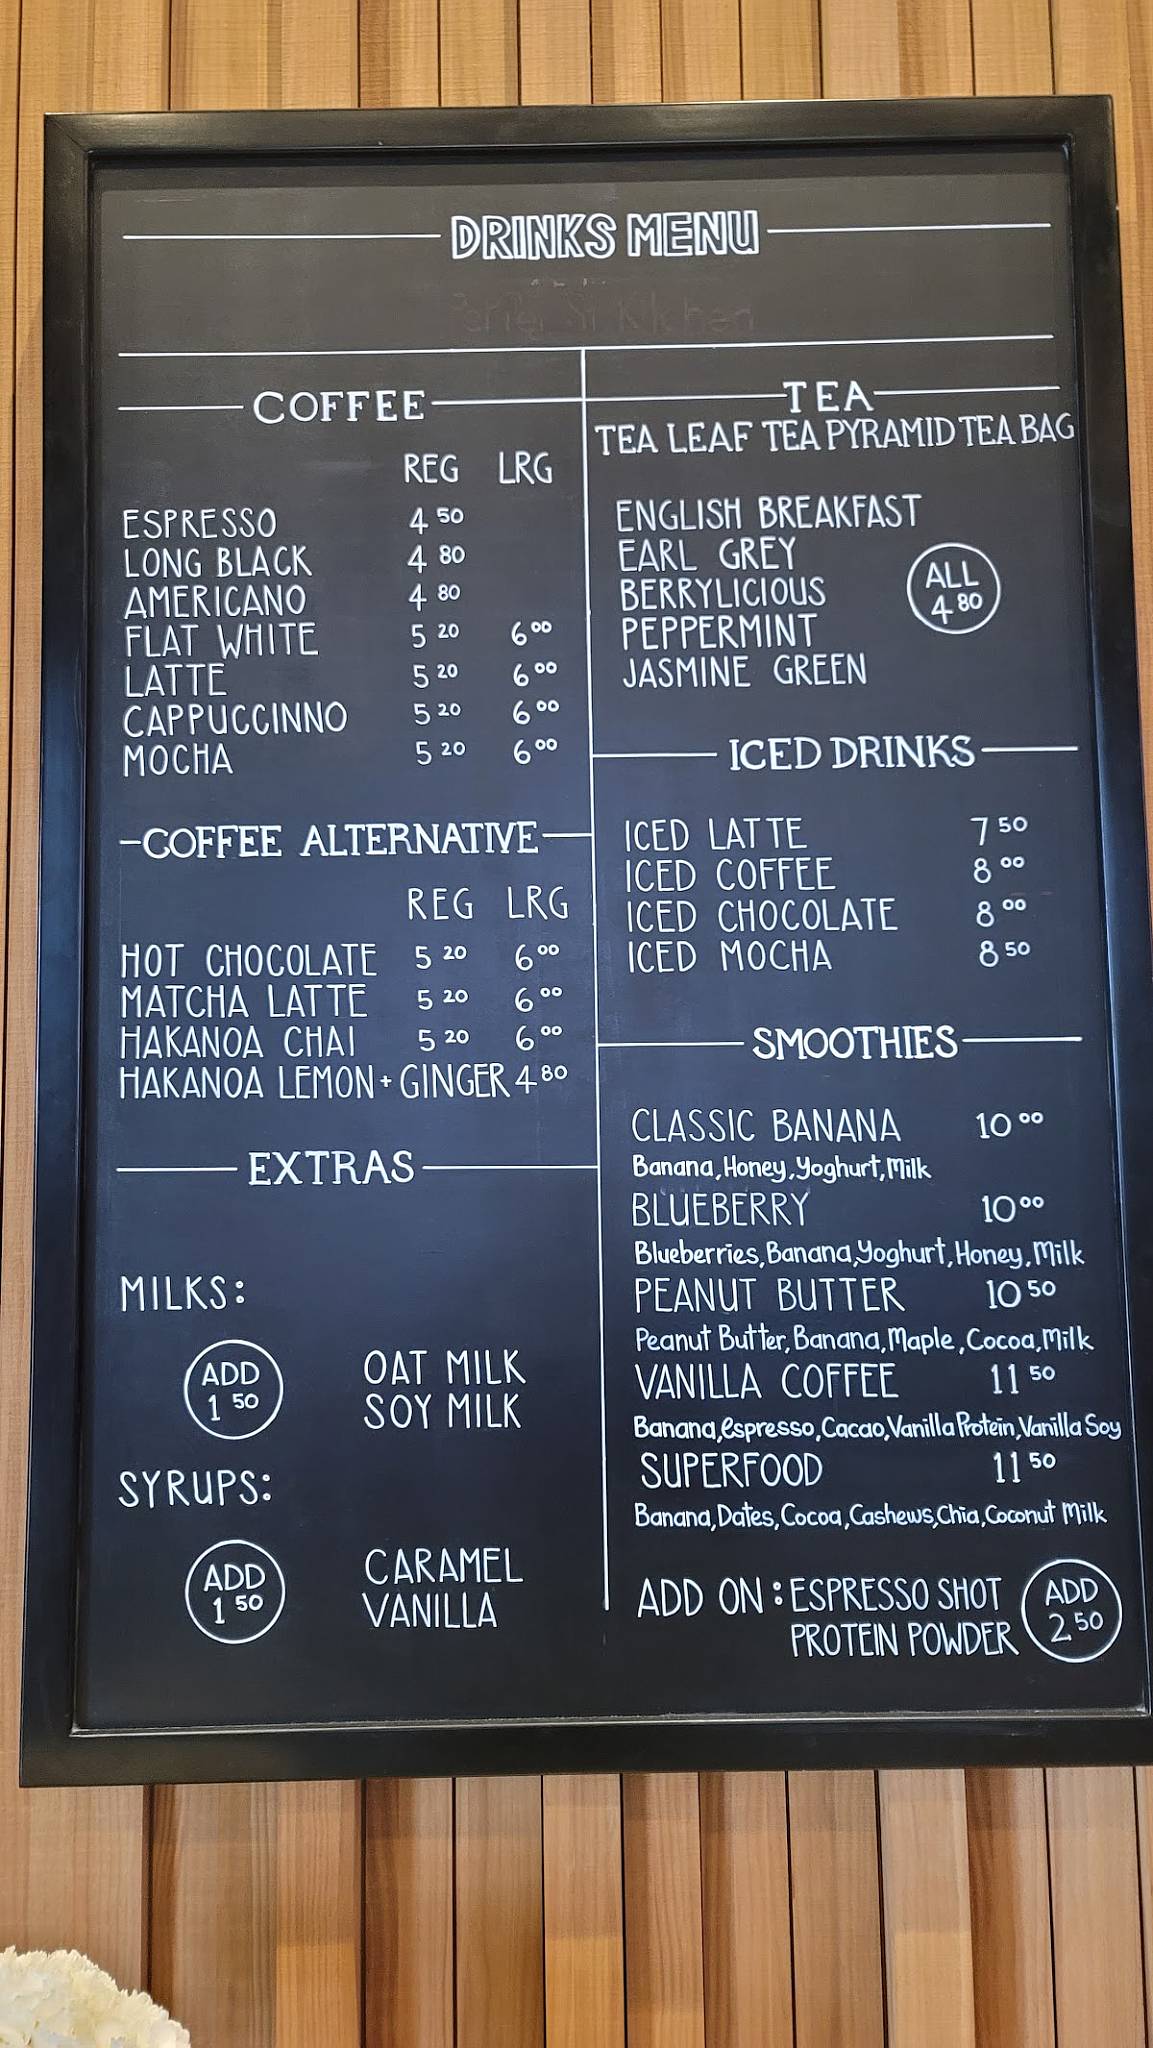 DRINKS MENU
COFFEE
REG LRG
ESPRESSO 4 50
LONG BLACK 4 80
AMERICANO 4 80
FLAT WHITE 5 20 6 00
LATTE 5 20 6 00
CAPPUCCINNO 5 20 6 00
MOCHA 5 20 6 00
COFFEE ALTERNATIVE
REG LRG
HOT CHOCOLATE 5 20 6 00
MATCHA LATTE 5 20 6 00
HAKANOA CHAI 5 20 6 00
HAKANOA LEMON + GINGER 4 80
EXTRAS
MILKS:
ADD 1 50
OAT MILK
SOY MILK
SYRUPS:
ADD 1 50
CARAMEL
VANILLA
TEA
TEA LEAF TEA PYRAMID TEA BAG
ENGLISH BREAKFAST
EARL GREY
BERRYLICIOUS
PEPPERMINT
JASMINE GREEN
ALL 4 80
ICED DRINKS
ICED LATTE 7 50
ICED COFFEE 8 00
ICED CHOCOLATE 8 00
ICED MOCHA 8 50
SMOOTHIES
CLASSIC BANANA 10 00
Banana, Honey, Yoghurt, Milk
BLUEBERRY 10 00
Blueberries, Banana, Yoghurt, Honey, Milk
PEANUT BUTTER 10 50
Peanut Butter, Banana, Maple, Cocoa, Milk
VANILLA COFFEE 11 50
Banana, Espresso, Cacao, Vanilla Protein, Vanilla Soy
SUPERFOOD 11 50
Banana, Dates, Cocoa, Cashews, Chia, Coconut Milk
ADD ON: ESPRESSO SHOT
PROTEIN POWDER
ADD 2 50